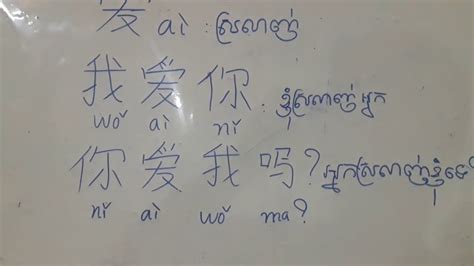 爱 ài : ស្រលាញ់
我爱你 : ខ្ញុំស្រលាញ់អ្នក
wǒ ài nǐ
你爱我吗? អ្នកស្រលាញ់ខ្ញុំទេ
nǐ ài wǒ ma?